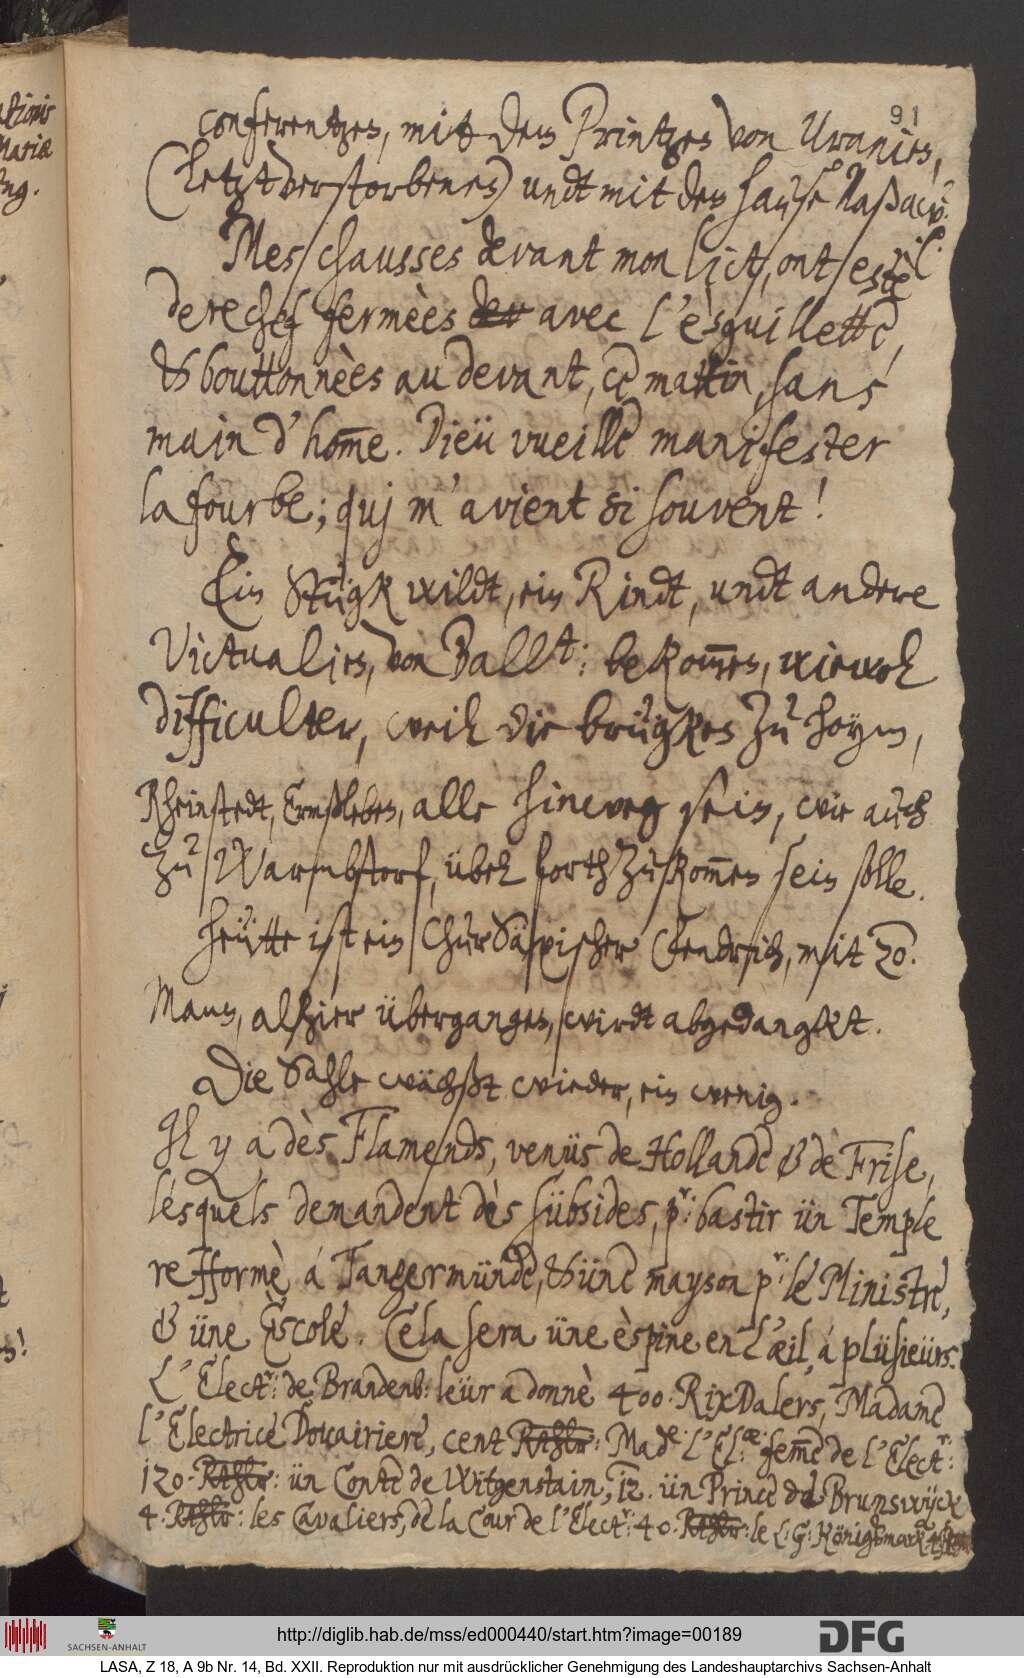 91
ationis
Mariæ
ung.
conferentzen, mit dem Printzen von Uranien,
(letztverstorbenen) undt mit dem hause Naßaw.
Mes chausses devant mon lict, ont estè
derechef fermèes der avec l'èsguillette,
& bouttonnèes au devant, ce mattin, sans
main d'home. Dieü vueille manifester
la fourbe; quj m'avient si souvent!
Ein Stügk wildt, ein Rindt, undt andere
Victualien, von Ballt: bekommen, wiewol
difficulter, weil die brügken zu hoym,
Rheinstedt, Ermßleben, alle hinweg sein, wie auch
zu Warmbstorf, übel forth zukommen sein solle.
Heütte ist ein ChurSäxischer Fendrich, mit 20.
Mann, alhier übergangen, wirdt abgedangkt.
Die Sahle wächßt wieder, ein wenig.
Il y a dès Flamends, venüs de Hollande & de Frise,
lésquels demandent dès sübsides, pr: bastir ün Temple
refformè á Tangermünde, & üne mayson pr: le Ministre,
& üne Escole. Cela sera üne èspine en l'œil, á plüsieürs.
L'Electr: de Brandenb: leür a donnè 400. RixDalers, Madame
l'Electrice Doüairiere, cent Rthlr: Made: l'El:æ: feme de l'Electr:
120. Rthlr: ün Conte de Witgenstain, 12. ün Prince de Brunswyck
4. Rthlr: les Cavaliers, de la Cour de l'Electr: 40. Rthlr: le L: G: Königsmarck
SACHSEN-ANHALT
http://diglib.hab.de/mss/ed000440/start.htm?image=00189
DFG
LASA, Z 18, A 9b Nr. 14, Bd. XXII. Reproduktion nur mit ausdrücklicher Genehmigung des Landeshauptarchivs Sachsen-Anhalt